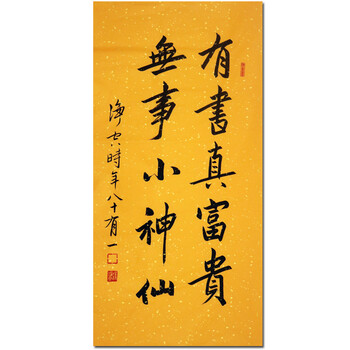 有書真富貴
無事小神仙
净空時年八十有一